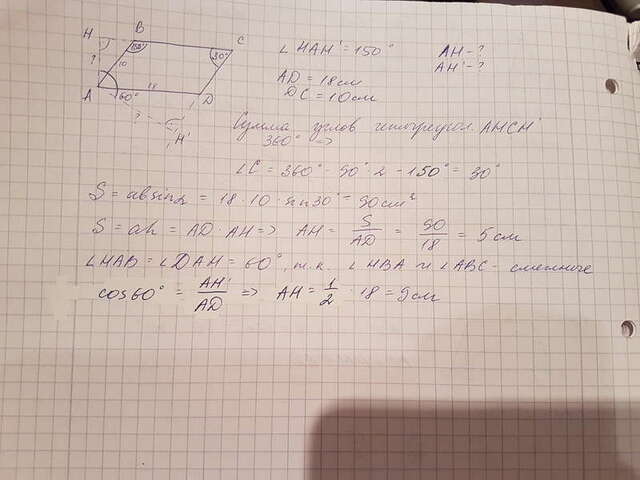 H B C
150° 30°
? 10
18
A 60° D
? H'
∠HAH' = 150° AH - ?
AH' - ?
AD = 18см
DC = 10см
Сумма углов четырехугол. AHCH'
360° =>
∠C = 360° - 90° · 2 - 150° = 30°
S = absinα = 18 · 10 · sin30° = 90см²
S = ah = AD · AH => AH = S/AD = 90/18 = 5 см
∠HAB = ∠DAH' = 60°, т.к. ∠HBA и ∠ABC - смежные
cos60° = AH'/AD => AH = 1/2 · 18 = 9см